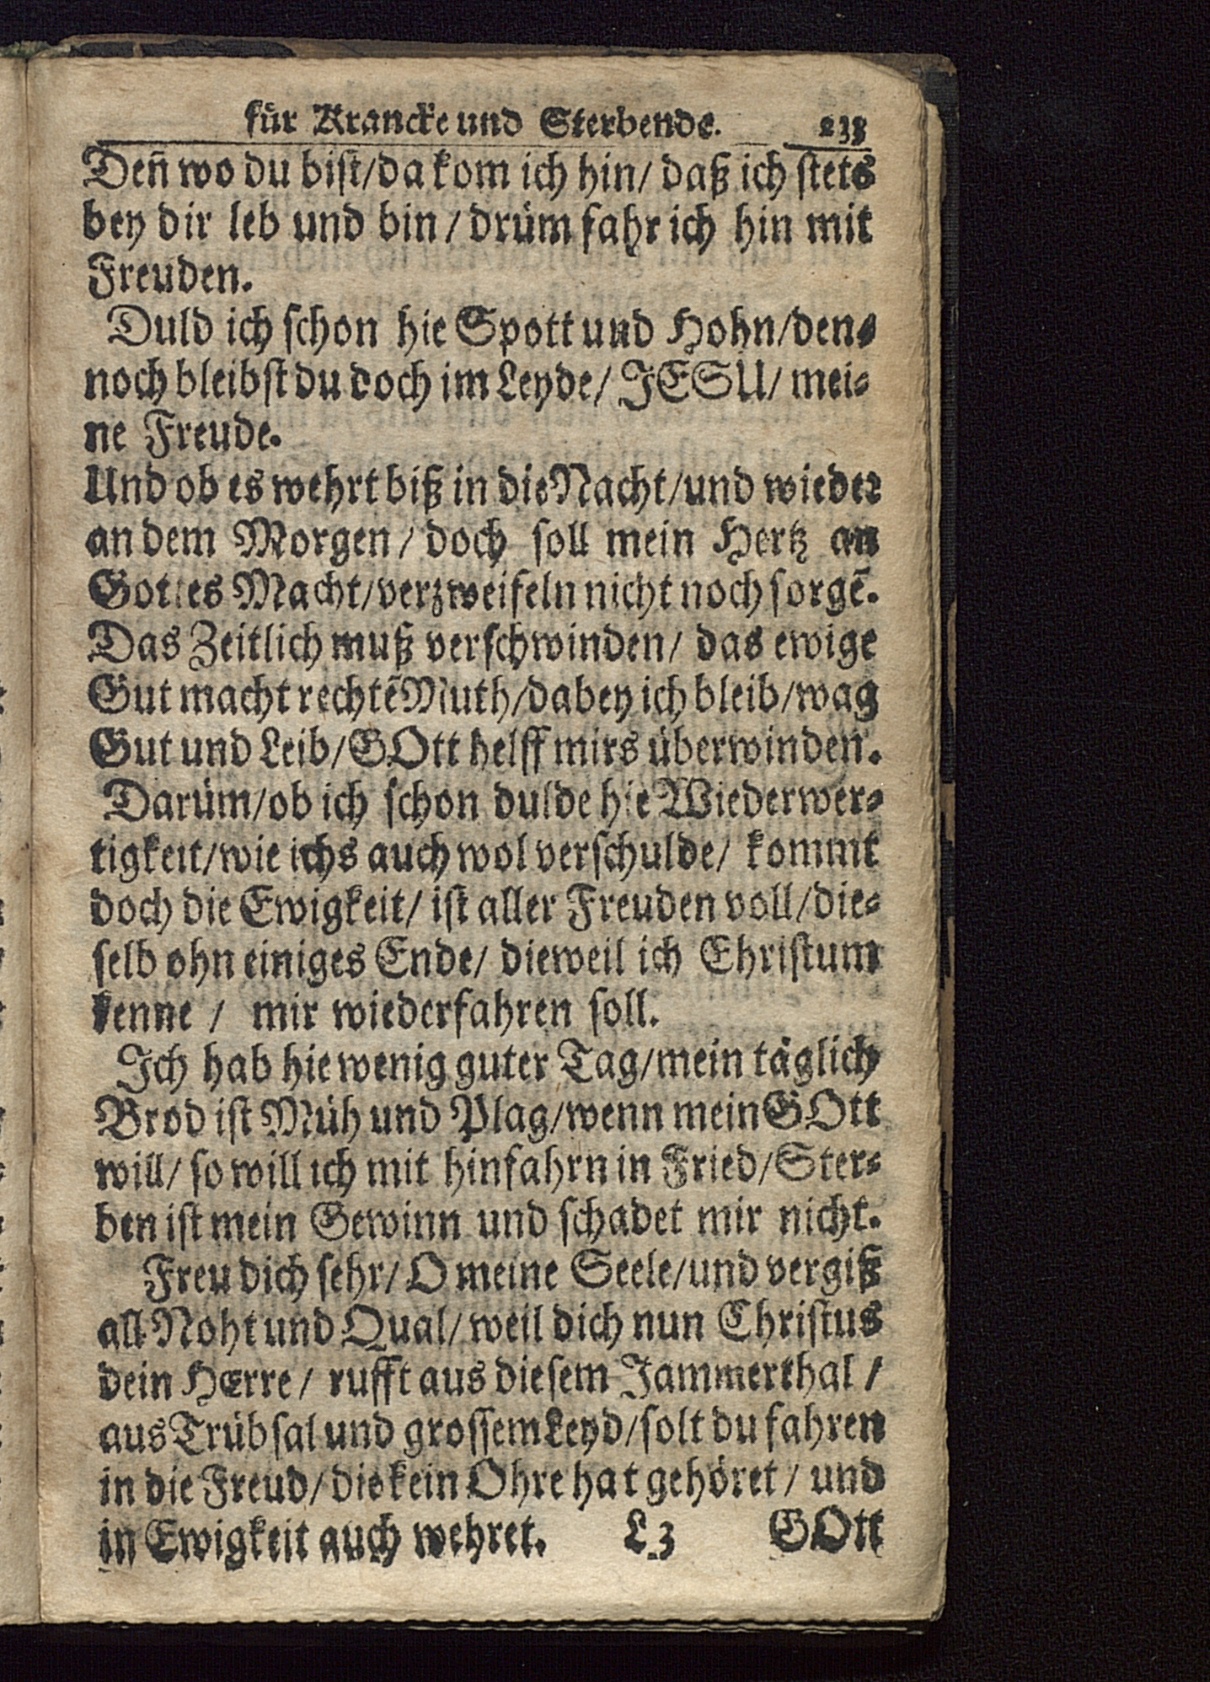 für Krancke und Sterbende. 233
Deñ wo du bist/da kom ich hin/ daß ich stets
bey dir leb und bin/drüm fahr ich hin mit
Freuden.
Duld ich schon hie Spott und Hohn/den-
noch bleibst du doch im Leyde/ JESU/ mei-
ne Freude.
Und ob es wehrt biß in die Nacht/und wieder
an dem Morgen/doch soll mein Hertz an
Gottes Macht/verzweifeln nicht noch sorgẽ.
Das Zeitlich muß verschwinden/ das ewige
Gut macht rechtẽ Muth/dabey ich bleib/wag
Gut und Leib/GOtt helff mirs überwinden.
Darüm/ob ich schon dulde hie Wiederwer-
tigkeit/wie ichs auch wol verschulde/ kommt
doch die Ewigkeit/ ist aller Freuden voll/die-
selb ohn einiges Ende/ dieweil ich Christum
kenne / mir wiederfahren soll.
Ich hab hie wenig guter Tag/mein täglich
Brod ist Müh und Plag/wenn mein GOtt
will/ so will ich mit hinfahrn in Fried/Ster-
ben ist mein Gewinn und schadet mir nicht.
Freu dich sehr/ O meine Seele/und vergiß
all Noht und Qual/weil dich nun Christus
dein HErre/ rufft aus diesem Jammerthal/
aus Trübsal und grossem Leyd/solt du fahren
in die Freud/die kein Ohre hat gehöret/ und
in Ewigkeit auch wehret. L3 GOtt